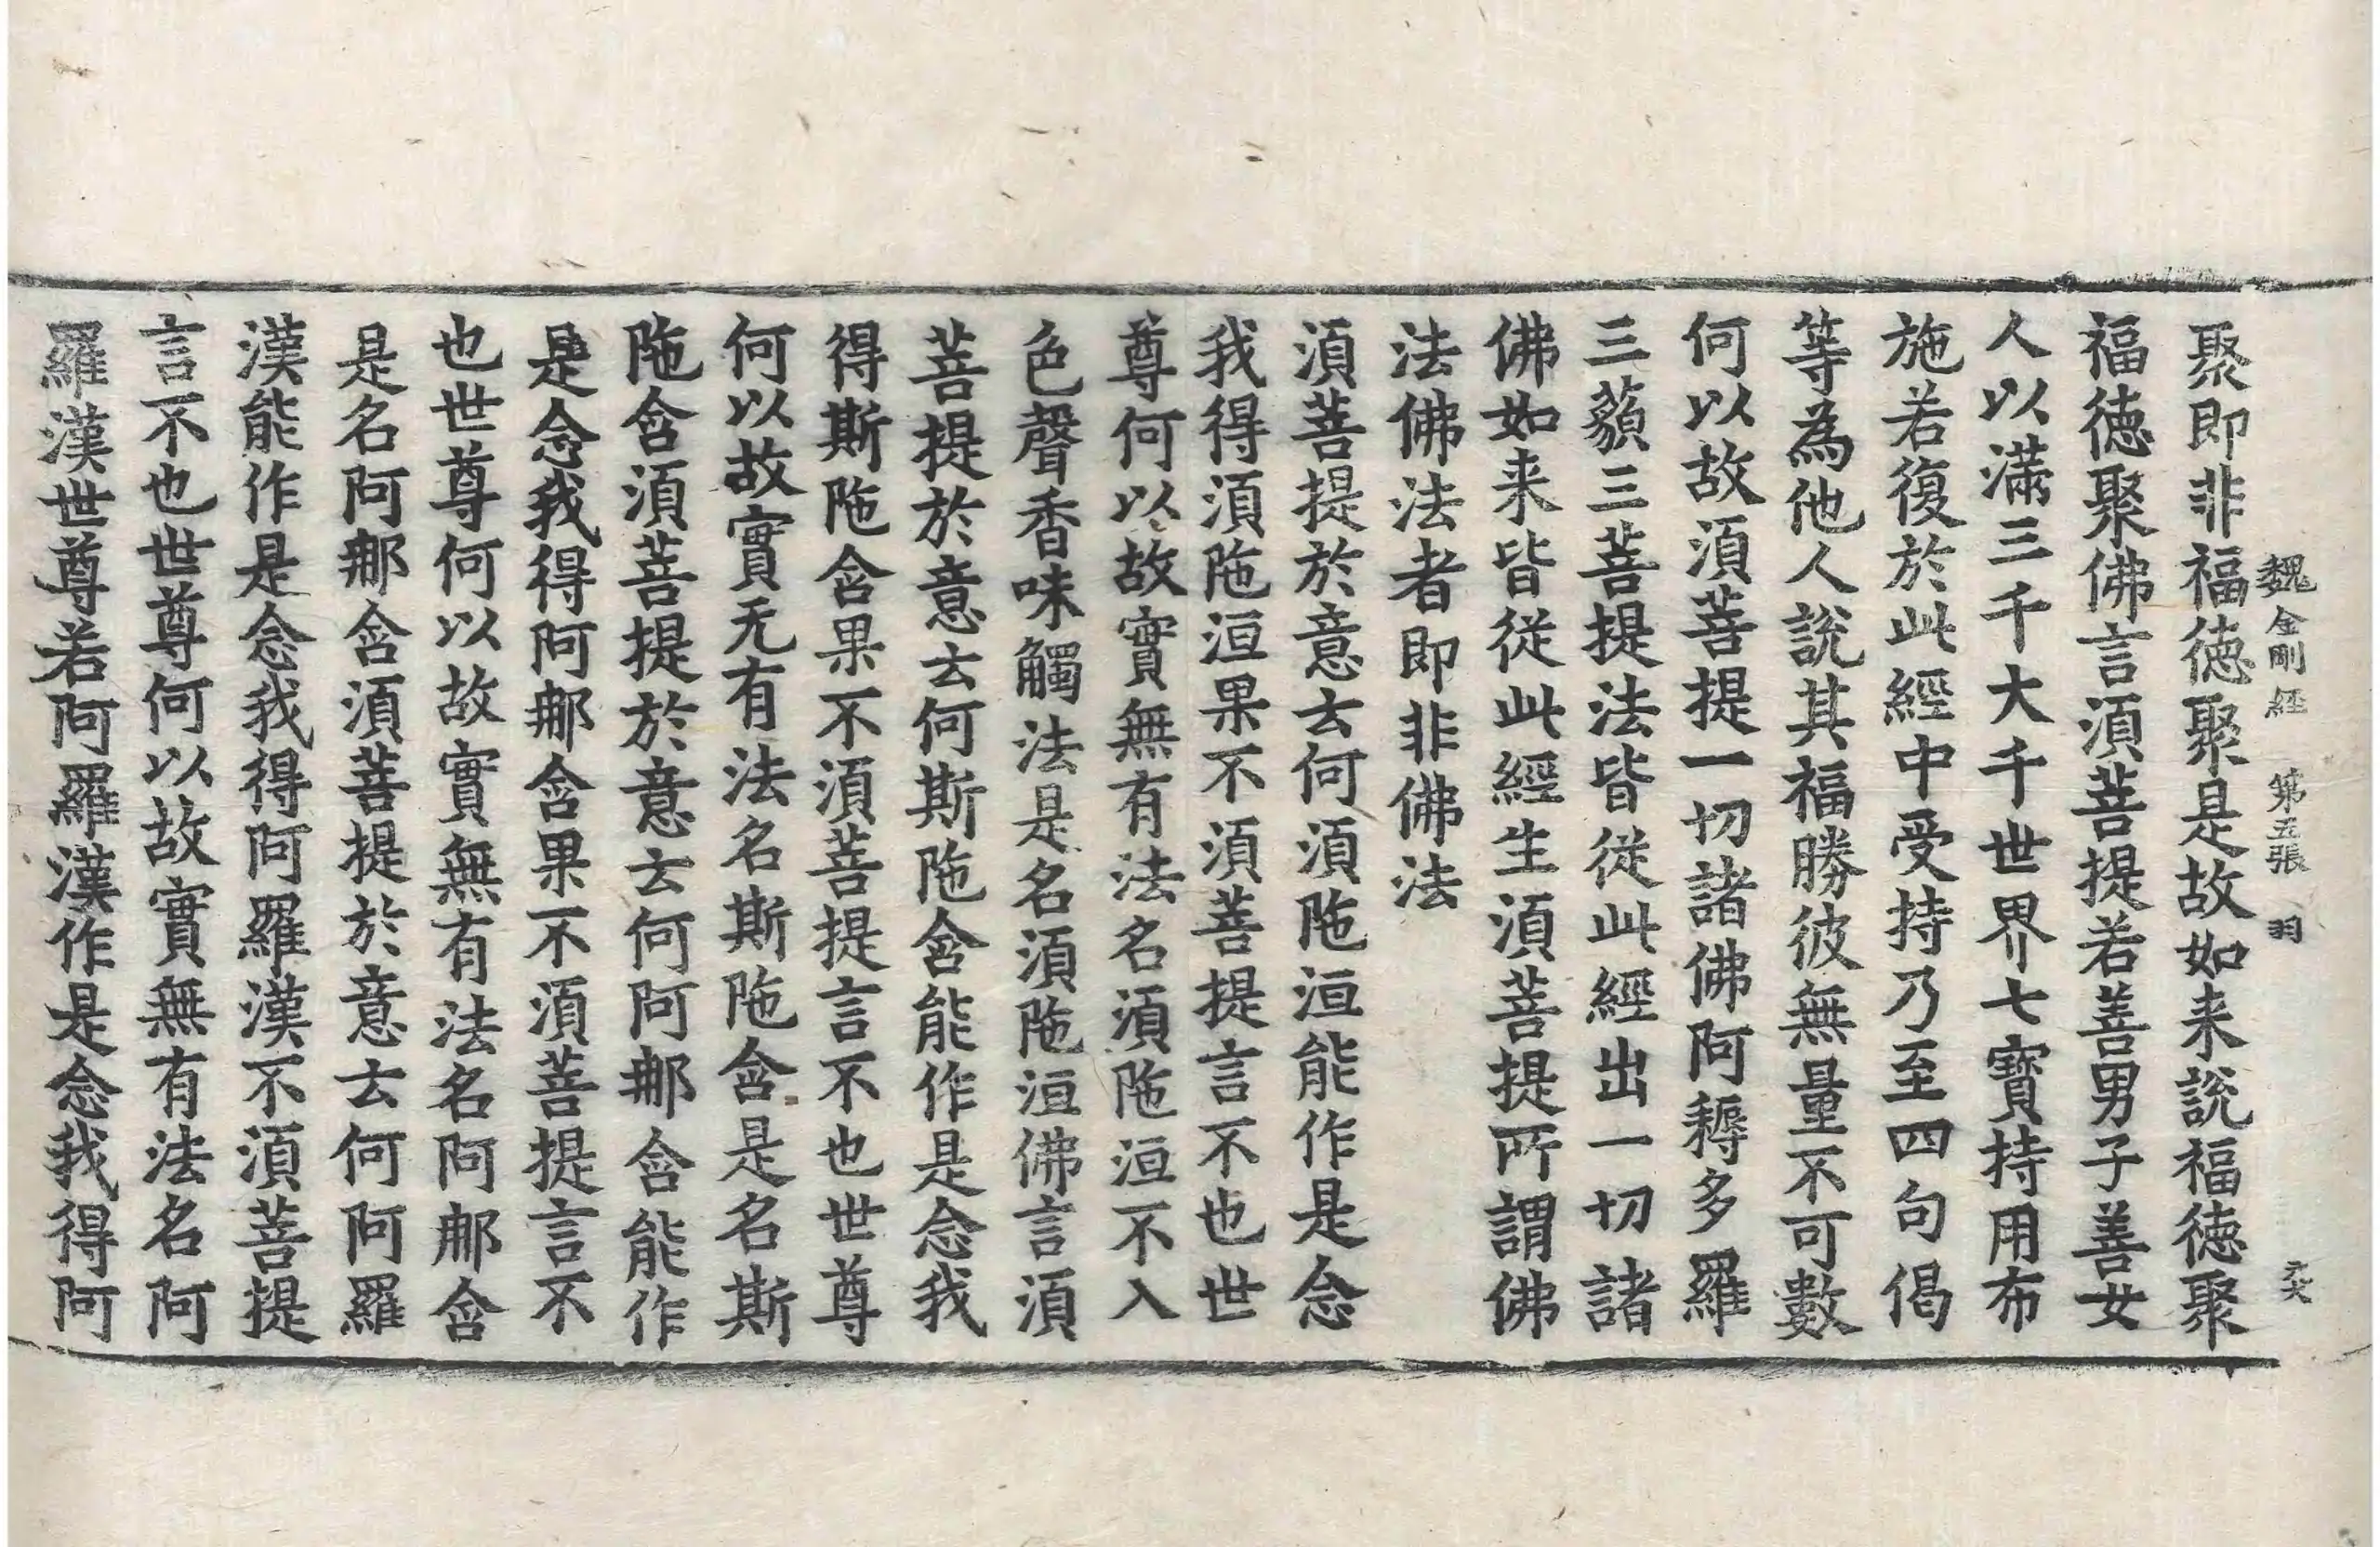 魏金剛経 第五張 羽 元大
聚即非福徳聚是故如来說福徳聚
福徳聚佛言湏菩提若善男子善女
人以滿三千大千世界七寶持用布
施若復於此經中受持乃至四句偈
等為他人說其福勝彼無量不可數
何以故湏菩提一切諸佛阿耨多羅
三藐三菩提法皆従此經出一切諸
佛如来皆従此經生湏菩提所謂佛
法佛法者即非佛法
湏菩提於意云何湏陁洹能作是念
我得湏陁洹果不湏菩提言不也世
尊何以故實無有法名湏陁洹不入
色聲香味觸法是名湏陁洹佛言湏
菩提於意云何斯陁含能作是念我
得斯陁含果不湏菩提言不也世尊
何以故實无有法名斯陁含是名斯
陁含湏菩提於意云何阿那含能作
是念我得阿那含果不湏菩提言不
也世尊何以故實無有法名阿那含
是名阿那含湏菩提於意云何阿羅
漢能作是念我得阿羅漢不湏菩提
言不也世尊何以故實無有法名阿
羅漢世尊若阿羅漢作是念我得阿